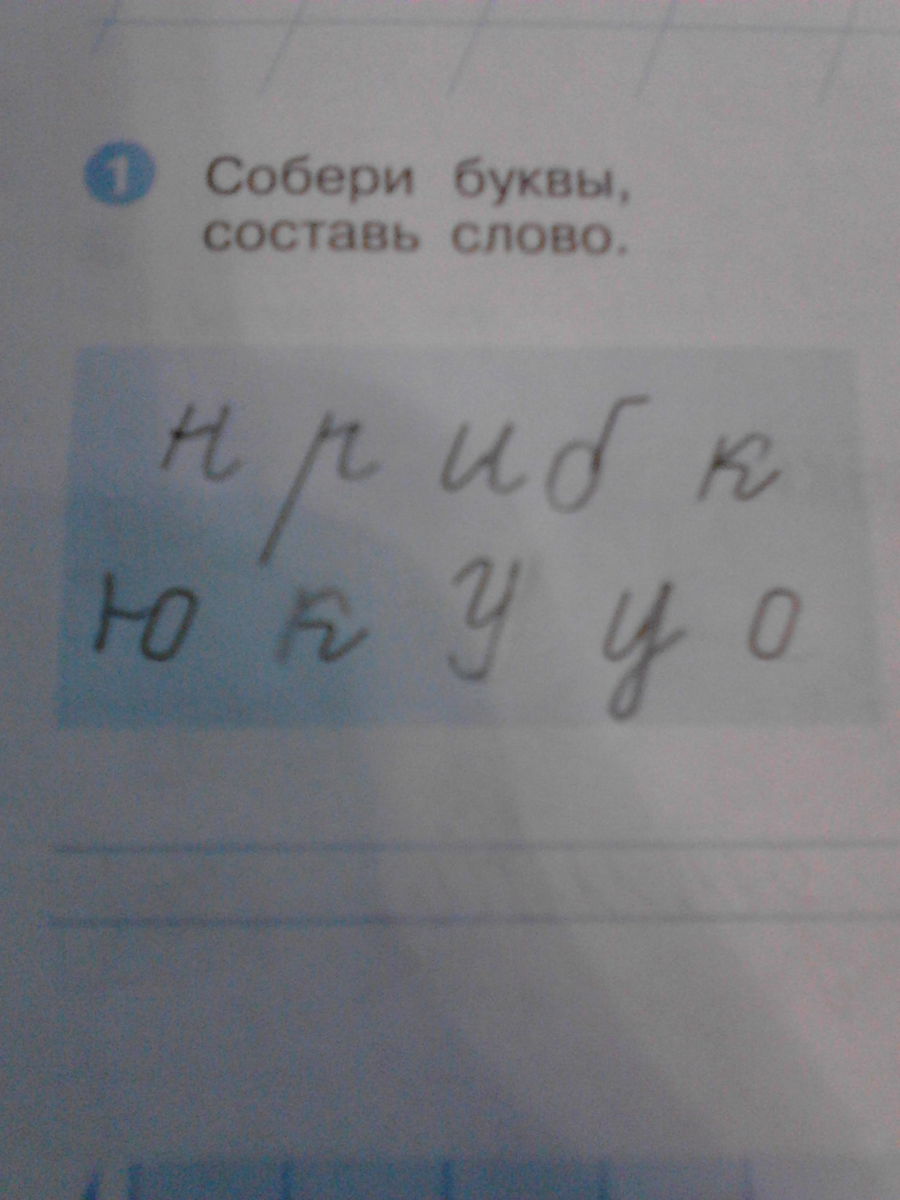 1 Собери буквы,
составь слово.
н р и б к
ю к У у о